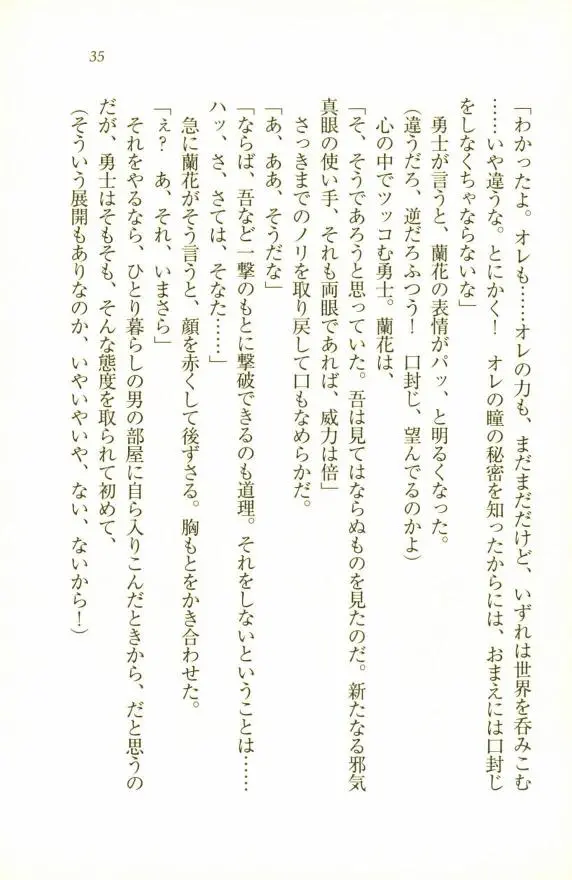 35
「わかったよ。オレも……オレの力も、まだまだだけど、いずれは世界を呑みこむ
……いや違うな。とにかく！　オレの瞳の秘密を知ったからには、おまえには口封じ
をしなくちゃならないな」
勇士が言うと、蘭花の表情がパッ、と明るくなった。
（違うだろ、逆だろふつう！　口封じ、望んでるのかよ）
心の中でツッコむ勇士。蘭花は、
「そ、そうであろうと思っていた。吾は見てはならぬものを見たのだ。新たなる邪気
真眼の使い手、それも両眼であれば、威力は倍」
さっきまでのノリを取り戻して口もなめらかだ。
「あ、ああ、そうだな」
「ならば、吾など一撃のもとに撃破できるのも道理。それをしないということは……
ハッ、さ、さては、そなた……」
急に蘭花がそう言うと、顔を赤くして後ずさる。胸もとをかき合わせた。
「ぇ？　あ、それ、いまさら」
それをやるなら、ひとり暮らしの男の部屋に自ら入りこんだときから、だと思うの
だが、勇士はそもそも、そんな態度を取られて初めて、
（そういう展開もありなのか、いやいやいや、ない、ないから！）